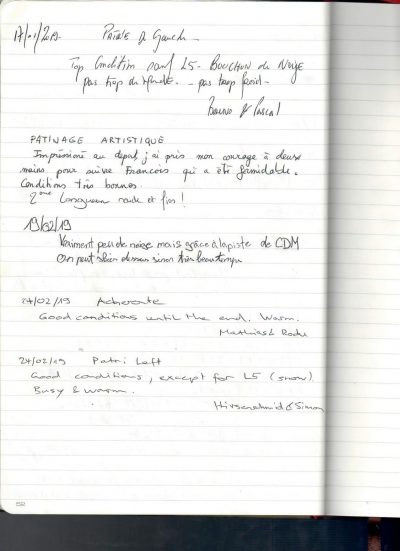 17/01/2019 Patri de Gauche -
Top Condition sauf L5 - Bouchon de Neige
pas trop de monde. - pas trop froid -
Bruno & Pascal
PATINAGE ARTISTIQUE
Impressioné au depart j'ai pris mon courage à deux
mains pour suivre Francois qui a été formidable.
Conditions très bonnes.
2ème Longueur raide et fine!
19/02/19
Vraiment peu de neige mais grâce à la piste de CDM
On peut skier dessus sinon très beau temps
24/02/19
Good conditions until the end. Warm.
Mathias &
24/02/19 Patri Left
Good conditions, except for L5 (snow)
Busy & warm.
& Simon